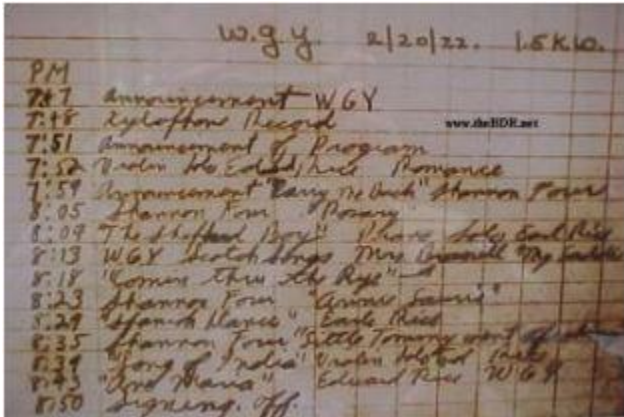 W.G.Y. 2/20/22. 1.5 K.W.
PM
7:47 Announcement WGY
7:48 Xylophone Record
www.theBDR.net
7:51 Announcement of Program
7:52 Violin Solo Edward Rice Romance
7:59 Announcement "Carry Me Back" Shannon Four
8:05 Shannon Four "Rosary"
8:09 "The Shepherd Boy" Piano Solo Earl Rice
8:13 WGY Scotch Songs Mrs
8:18 "Comin thru the Rye"
8:23 Shannon Four "Annie Laurie"
8:29 "Spanish Dance" Earle Rice
8:35 Shannon Four "Little Tommy went
8:39 "Song of India" Violin Solo Rice
8:43 "Ave Maria" Edward Rice WGY
8:50 Signing. Off.